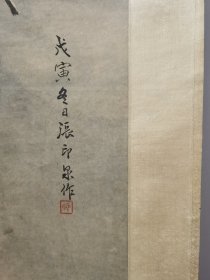 戊寅冬日張印泉作